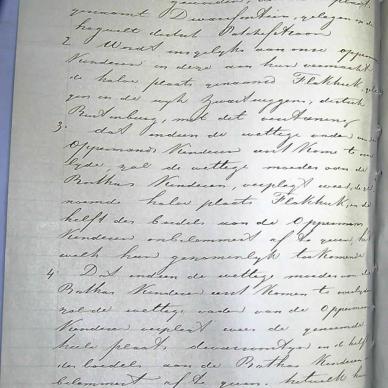 genaamd Dwarsfontein, gelegen in de
district Potchefstroom
2. Wordt mogelyks aan onze Oppermans
Kinderen in deze aan hen vermaakt
de halve plaats genaamd Flakhuk, gele
gen in de wyk Zwartruggens, district
Rustenburg, met dit verstaning
3. dat indien de wettige vader van de
Oppermans Kinderen eerst Komt te over
lyde zal de wettige moeder van de
Bothas Kinderen, verplegt wees, de ge
noemde halve plaats Flakhuk, en de
helft des boedels aan de Oppermans
Kinderen onbelammert af te geven, het
welk hun gezamenlyk toekomende
4. Dat indien de wettige moeder van de
Bothas Kinderen eerst Komen te overlyde
zal de wettige vader van de Opperman
Kinderen verplegt wees de genoemde
hele plaats dwarsfontyn en de helft
des boedels aan de Bothas Kinderen
belammert af te geven, hetwelk hun